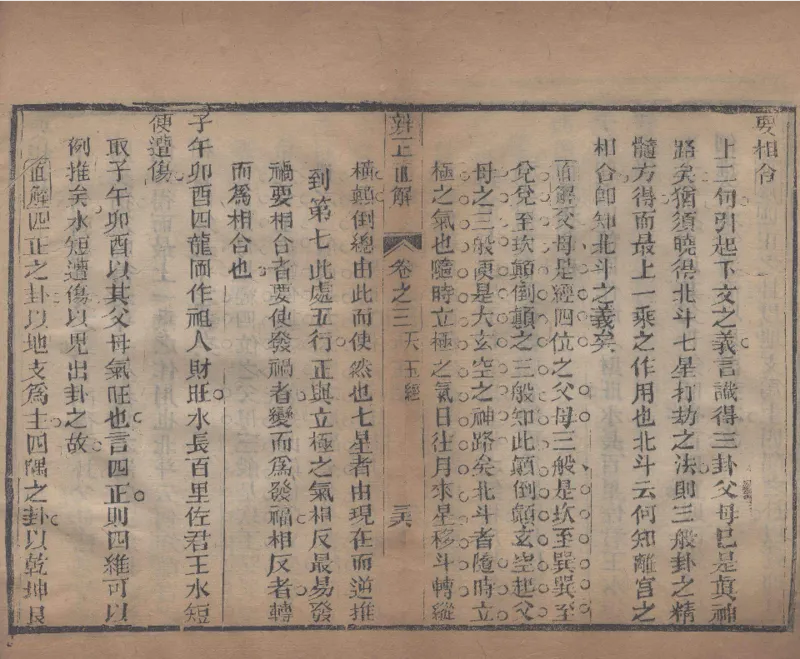 要相合
上二句引起下文之義言識得三卦父母已是真神
路矣猶須曉得北斗七星打劫之法則三般卦之精
髓方得而最上一乘之作用也北斗云何知離宮之
相合卽知北斗之義矣
直解父母是經四位之父母三般是坎至巽巽至
兌兌至坎顛倒顛之三般知此顛倒顛玄空起父
母之三般便是大玄空之神路矣北斗者隨時立
極之氣也隨時立極之氣日往月來星移斗轉縱
辨正直解 卷之三 天玉經 三六
橫顛倒總由此而使然也七星者由現在而逆推
到第七此處五行正與立極之氣相反最易發
禍要相合者要使發禍者變而爲發福相反者轉
而爲相合也
子午卯酉四龍岡作祖人財旺水長百里佐君王水短
便遭傷
取子午卯酉以其父母氣旺也言四正則四維可以
例推矣水短遭傷以見出卦之故
直解四正之卦以地支爲主四隅之卦以乾坤艮